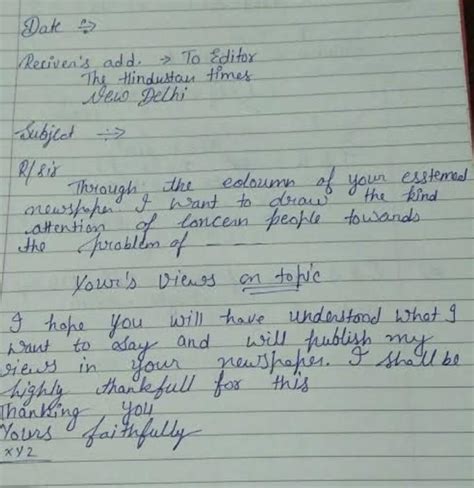 Date ÷>
Reciver's add. → To Editor
The Hindustan times
New Delhi
Subject ÷>
R/sir
Through the coloumn of your esstemed
newspaper I want to draw the kind
attention of concern people towards
the problem of -----
Your's views on topic
I hope you will have understood what I
want to say and will publish my
views in your newspaper. I shall be
highly thankfull for this
Thanking you
Yours faithfully
xyz